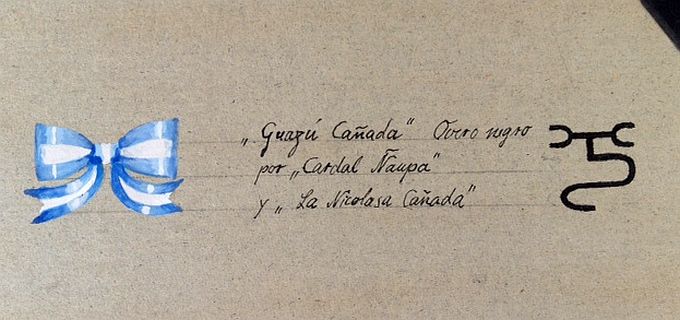 „Guazú Cañada“ Overo negro
por „Cardal Ñaupa“
y „La Nicolasa Cañada“